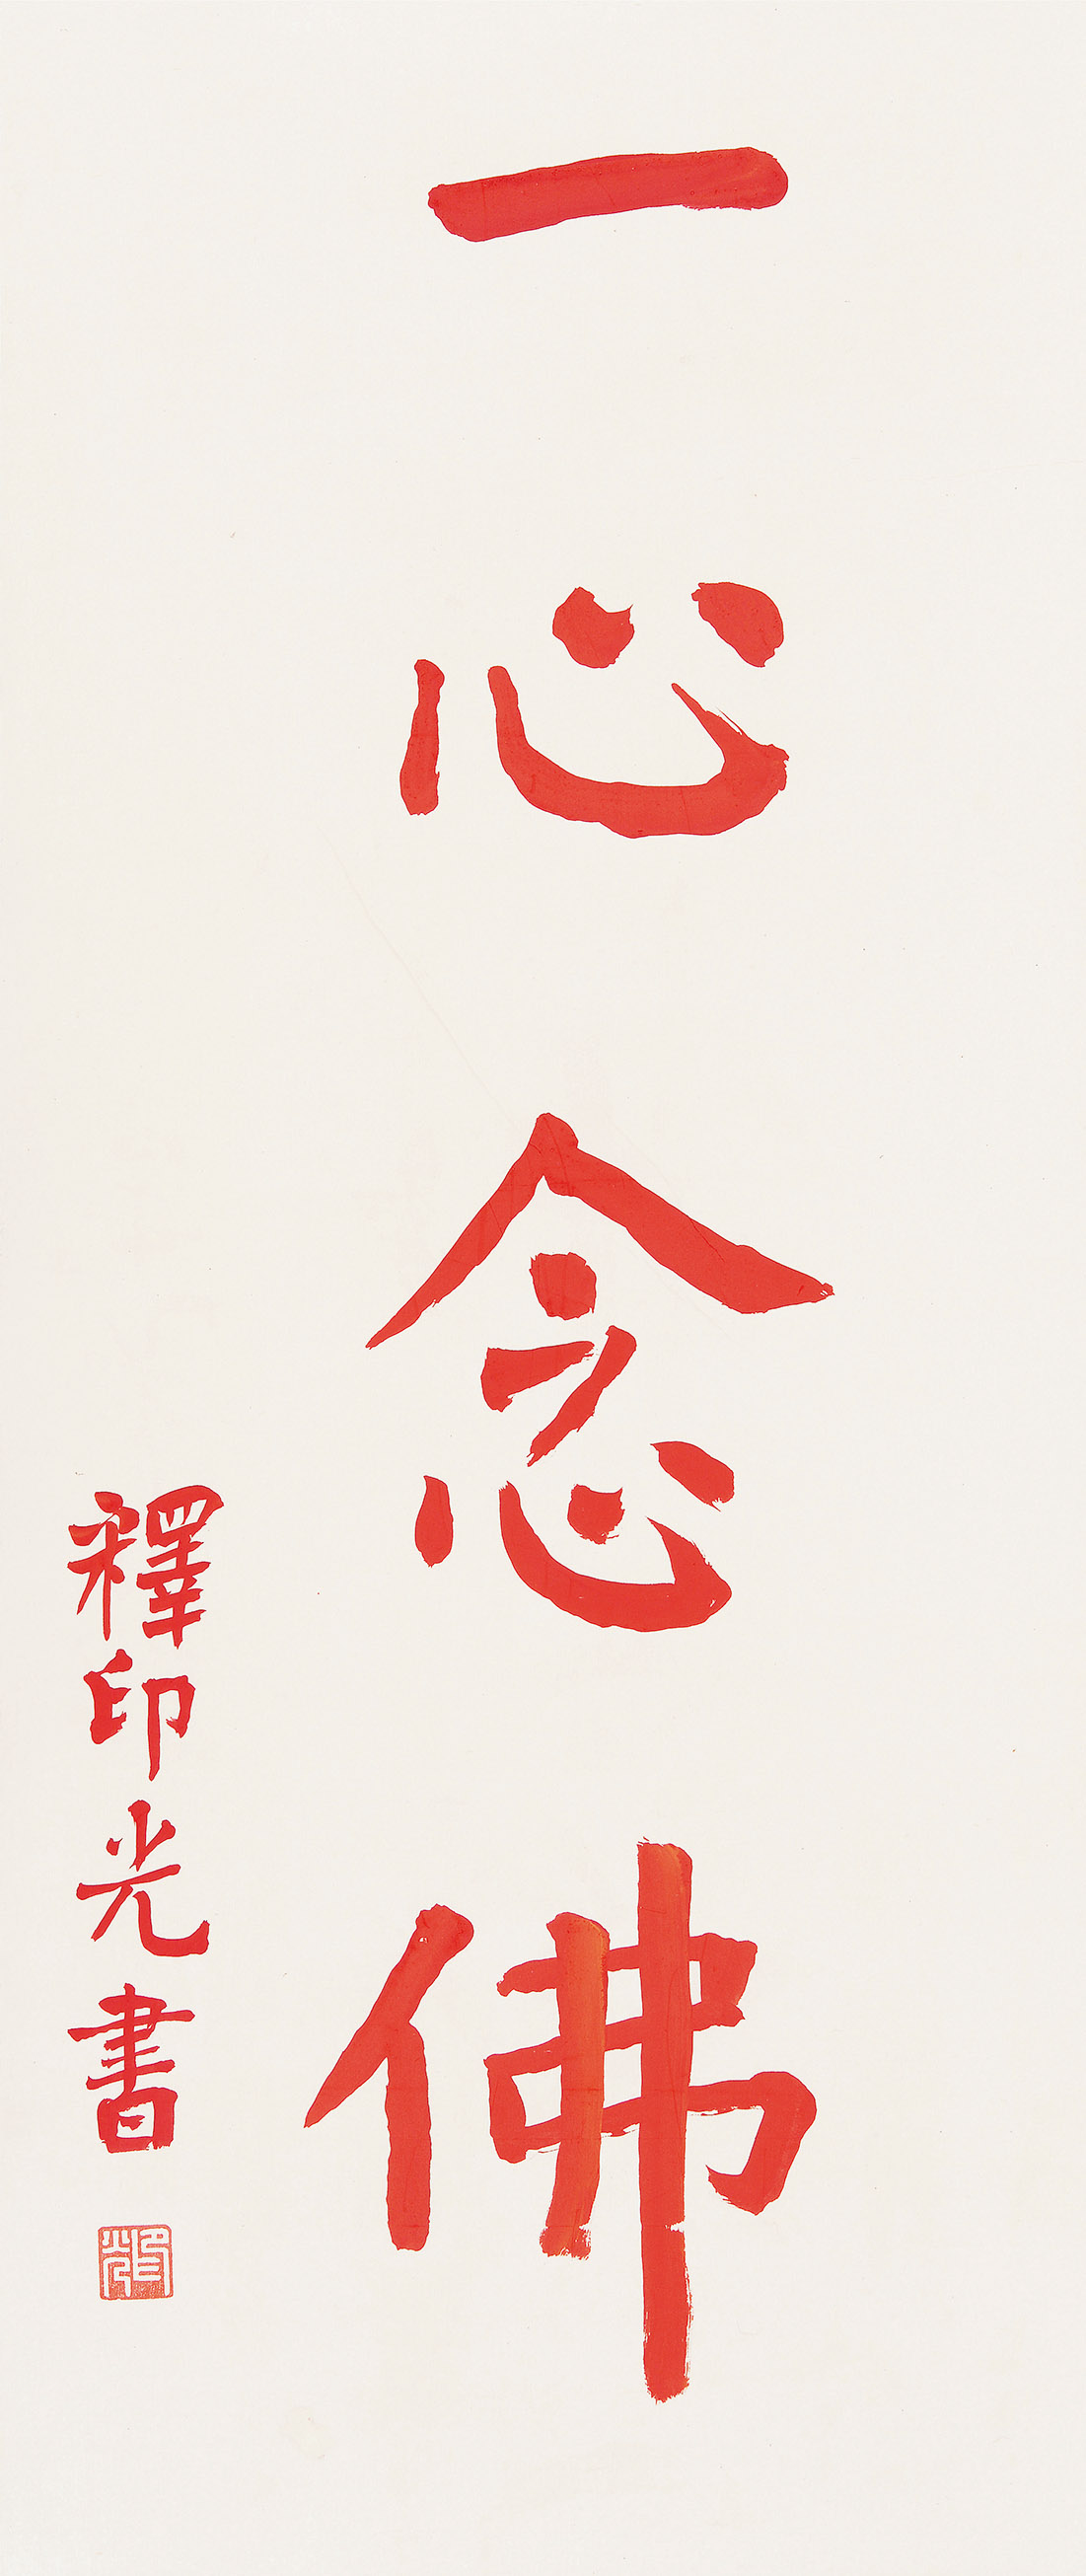 一心念佛
釋印光書
印光